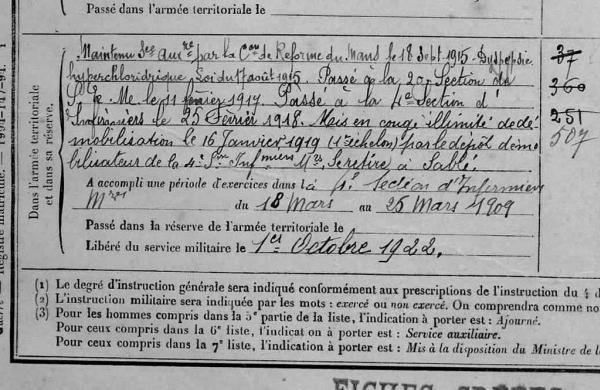 Passé dans l'armée territoriale le
Maintenu Sce auxre par la Con de Réforme du Mans le 18 Sept 1915 - Dyspepsie
hyperchloridrique. Loi du 17 août 1915. Passé à la 20e Section de
le 11 février 1917. Passé à la 4e Section d'
Infirmiers le 25 Février 1918. Mis en congé illimité de dé-
mobilisation le 16 Janvier 1919 (échelon) par le dépôt démo-
bilisateur de la 4e Son Infirmiers Mres, Se retire à Sablé
A accompli une période d'exercices dans la 4e Section d'Infirmiers
Mres du 18 Mars au 25 Mars 1909
Passé dans la réserve de l'armée territoriale le
Libéré du service militaire le 1er Octobre 1922.
Dans l'armée territoriale
et dans sa réserve.
37
360
251
507
(1) Le degré d'instruction générale sera indiqué conformément aux prescriptions de l'instruction du 4 d
(2) L'instruction militaire sera indiquée par les mots : exercé ou non exercé. On comprendra comme no
(3) Pour les hommes compris dans la 5e partie de la liste, l'indication à porter est : Ajourné.
Pour ceux compris dans la 6e liste, l'indicat on à porter est : Service auxiliaire.
Pour ceux compris dans la 7e liste, l'indication à porter est : Mis à la disposition du Ministre de la
Registre matricule. — 994-147-94.